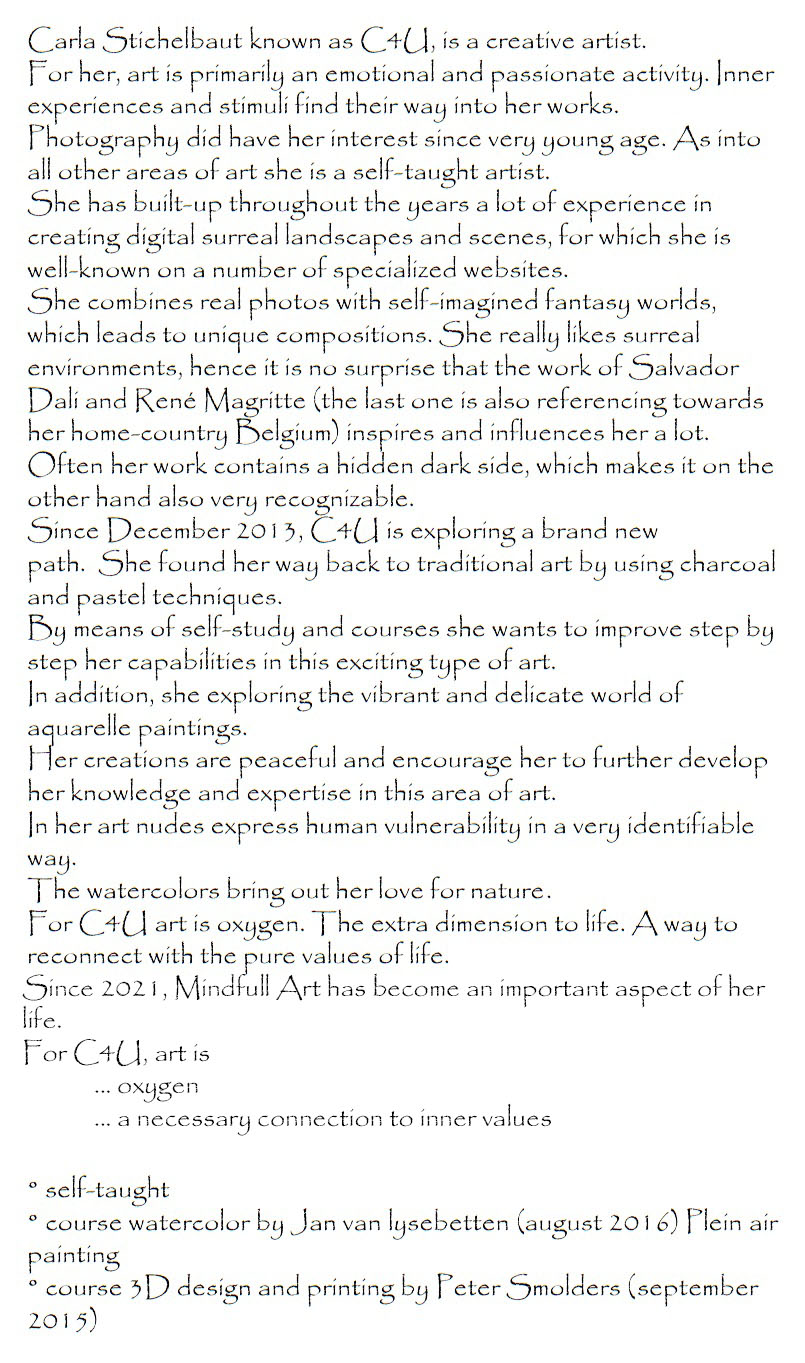 Carla Stichelbaut known as C4U, is a creative artist.
For her, art is primarily an emotional and passionate activity. Inner
experiences and stimuli find their way into her works.
Photography did have her interest since very young age. As into
all other areas of art she is a self-taught artist.
She has built-up throughout the years a lot of experience in
creating digital surreal landscapes and scenes, for which she is
well-known on a number of specialized websites.
She combines real photos with self-imagined fantasy worlds,
which leads to unique compositions. She really likes surreal
environments, hence it is no surprise that the work of Salvador
Dali and René Magritte (the last one is also referencing towards
her home-country Belgium) inspires and influences her a lot.
Often her work contains a hidden dark side, which makes it on the
other hand also very recognizable.
Since December 2013, C4U is exploring a brand new
path.  She found her way back to traditional art by using charcoal
and pastel techniques.
By means of self-study and courses she wants to improve step by
step her capabilities in this exciting type of art.
In addition, she exploring the vibrant and delicate world of
aquarelle paintings.
Her creations are peaceful and encourage her to further develop
her knowledge and expertise in this area of art.
In her art nudes express human vulnerability in a very identifiable
way.
The watercolors bring out her love for nature.
For C4U art is oxygen. The extra dimension to life. A way to
reconnect with the pure values of life.
Since 2021, Mindfull Art has become an important aspect of her
life.
For C4U, art is
... oxygen
... a necessary connection to inner values
° self-taught
° course watercolor by Jan van lysebetten (august 2016) Plein air
painting
° course 3D design and printing by Peter Smolders (september
2015)